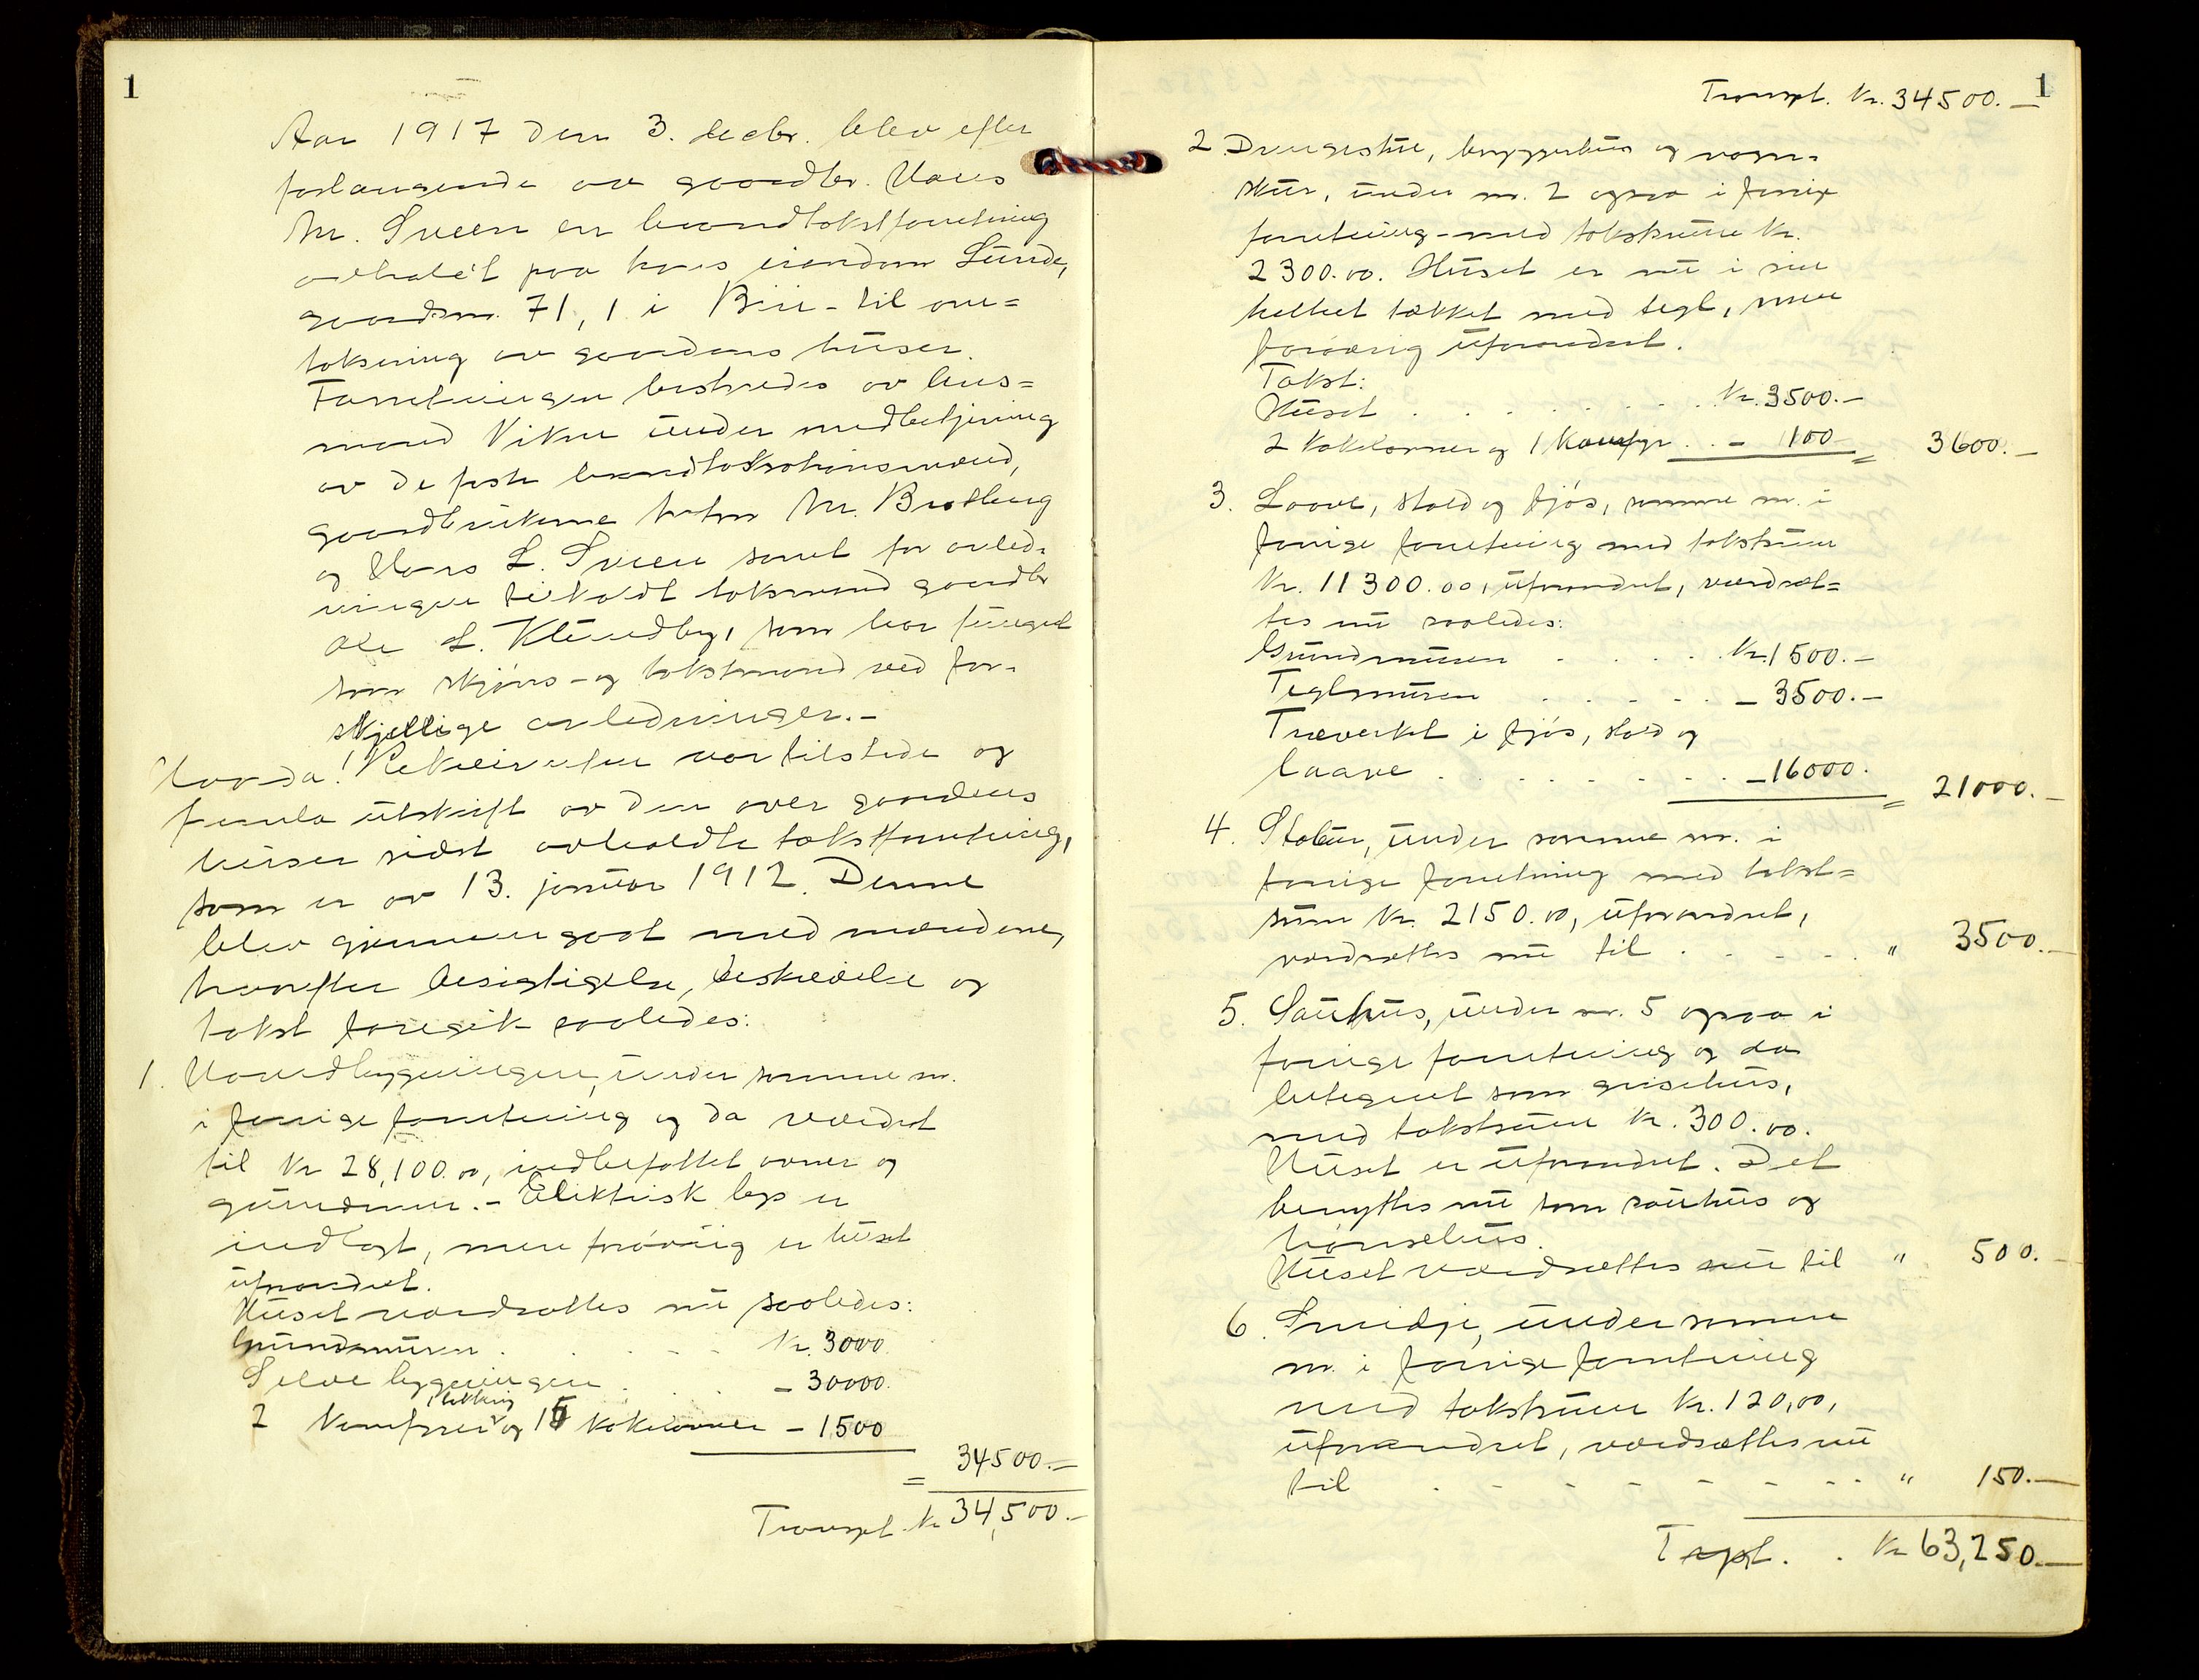 1
Aar 1917 den 3. decbr. blev efter
forlangende av gaardbr. Hans
M. Sveen en brandtakstforretning
avholdt paa hans eiendom Sunde,
gaardsnr. 71, 1 i Biri - til om=
taksering av gaardens huser.
Forretningen bestyredes av lens=
mand Viken under medbetjening
av de faste brandtakstationsmænd,
gaardbrukerne Johan M. Bratberg
og Hans L. Sveen samt for anled-
ningen tilkaldt takstmand gaardbr
Ole L. Klundby, som har fungert
som skjøns- og takstmand ved for-
skjellige anledninger.-
Hvorda! Rekvirenten var tilstede og
fremla utskrift av den over gaardens
huser sidst avholdte takstforretning,
som er av 13. januar 1912. Denne
blev gjennemgaat med mændene,
hvorefter besigtigelse, beskrivelse og
takst foregik saaledes:
1. Hovedbygningen, under samme nr.
i forrige forretning og da værdsat
til Kr 28,100.00, indbefattet ovner og
grundmur. - Elektrisk lys er
indlagt, men forøvrig er huset
uforandret.
Huset værdsættes nu saaledes:
Grundmuren . . . . Kr. 3000
Selve bygningen . . . - 30000.
2 Komfyrer og 15 kakelovner - 1500
= 34500.-
Transpt. Kr 34,500.-
1
Transpt. Kr. 34500.-
2. Drengestue, bryggerhus og vogn-
skur, under nr. 2 ogsaa i forrige
forretning - med takstsum Kr.
2300.00. Huset er nu i sin
helhet tækket med tegl, men
forøvrig uforandret.
Takst:
Huset . . . . . . . Kr. 3500.-
2 kakelovner og 1 Komfyr . . - 100 = 3600.-
3. Laave, stald og fjøs, samme nr. i
forrige forretning med takstsum
Kr. 11300.00, uforandret, værdsæt=
tes nu saaledes:
Grundmuren . . . . Kr. 1500.-
Teglmuren . . . . . - 3500.-
Træverket i fjøs, stald og
laave . . . . . . . - 16000. = 21000.-
4. Stabur, under samme nr. i
forrige forretning med takst=
sum Kr. 2150.00, uforandret,
værdsættes nu til . . . . . " 3500.-
5. Sauhus, under nr. 5 ogsaa i
forrige forretning og da
betegnet som grisehus,
med takstsum Kr. 300.00.
Huset er uforandret. Det
benyttes nu som sauhus og
hønsehus.
Huset værdsættes nu til " 500.-
6. Smidje, under samme
nr. i forrige forretning
med takstsum Kr. 120,00,
uforandret, værdsættes nu
til . . . . . . . . " 150.-
Trpt. . Kr 63,250.-